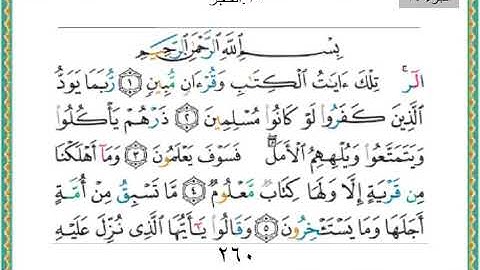 بِسْمِ اللَّهِ الرَّحْمَٰنِ الرَّحِيمِ
الٓر ۚ تِلْكَ ءَايَٰتُ الْكِتَٰبِ وَقُرْءَانٍ مُّبِينٍ ١ رُّبَمَا يَوَدُّ
الَّذِينَ كَفَرُوا لَوْ كَانُوا مُسْلِمِينَ ٢ ذَرْهُمْ يَأْكُلُوا
وَيَتَمَتَّعُوا وَيُلْهِهِمُ الْأَمَلُ ۖ فَسَوْفَ يَعْلَمُونَ ٣ وَمَآ أَهْلَكْنَا
مِن قَرْيَةٍ إِلَّا وَلَهَا كِتَابٌ مَّعْلُومٌ ٤ مَّا تَسْبِقُ مِنْ أُمَّةٍ
أَجَلَهَا وَمَا يَسْتَـْٔخِرُونَ ٥ وَقَالُوا يَٰٓأَيُّهَا الَّذِى نُزِّلَ عَلَيْهِ
٢٦٠